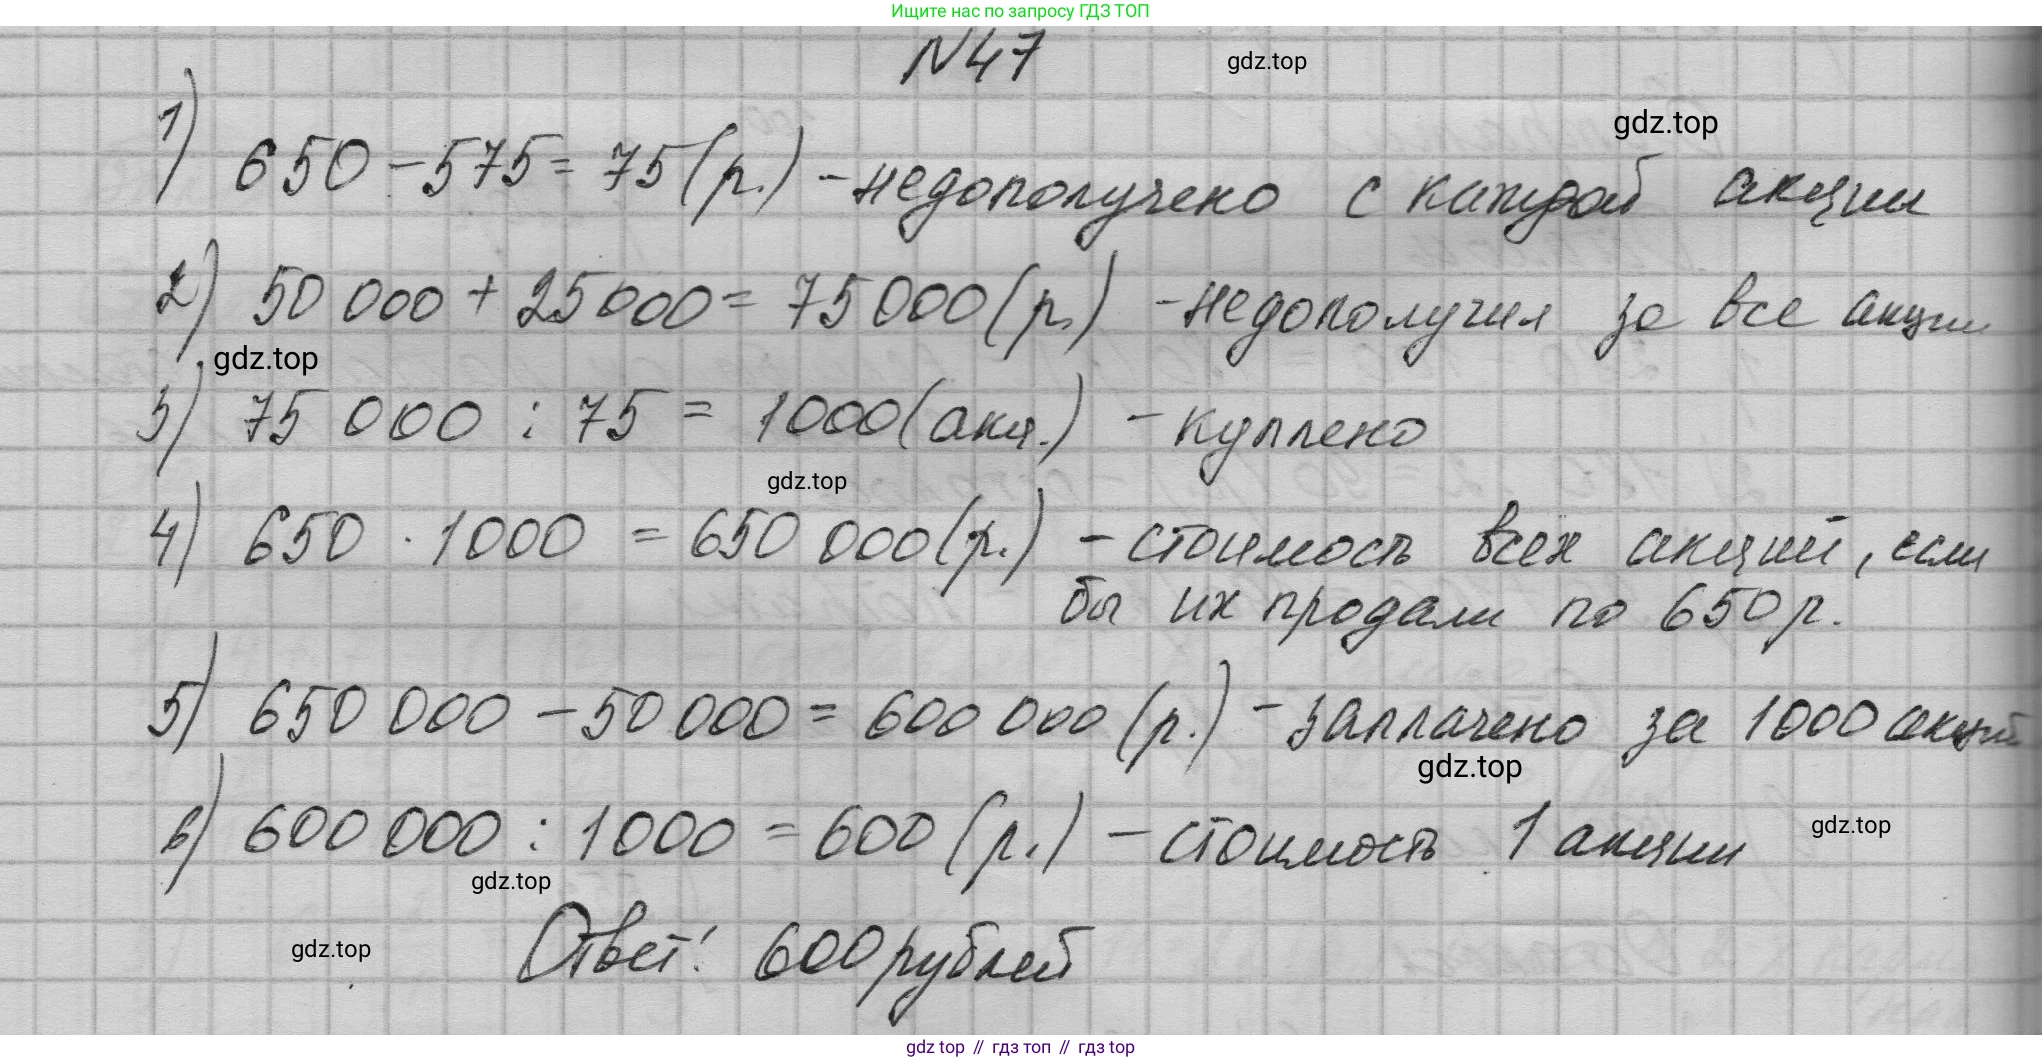 Ищите нас по запросу ГДЗ ТОП
N47
gdz.top
gdz.top
1) 650 - 575 = 75 (р.) - недополучено с каждой акции
2) 50 000 + 25 000 = 75 000 (р.) - недополучил за все акции
gdz.top
3) 75 000 : 75 = 1000 (акц.) - куплено
gdz.top
4) 650 · 1000 = 650 000 (р.) - стоимость всех акций, если
бы их продали по 650 р.
5) 650 000 - 50 000 = 600 000 (р.) - заплачено за 1000 акций
gdz.top
6) 600 000 : 1000 = 600 (р.) - стоимость 1 акции
gdz.top
gdz.top
Ответ: 600 рублей
gdz.top
gdz top // гдз топ // gdz top